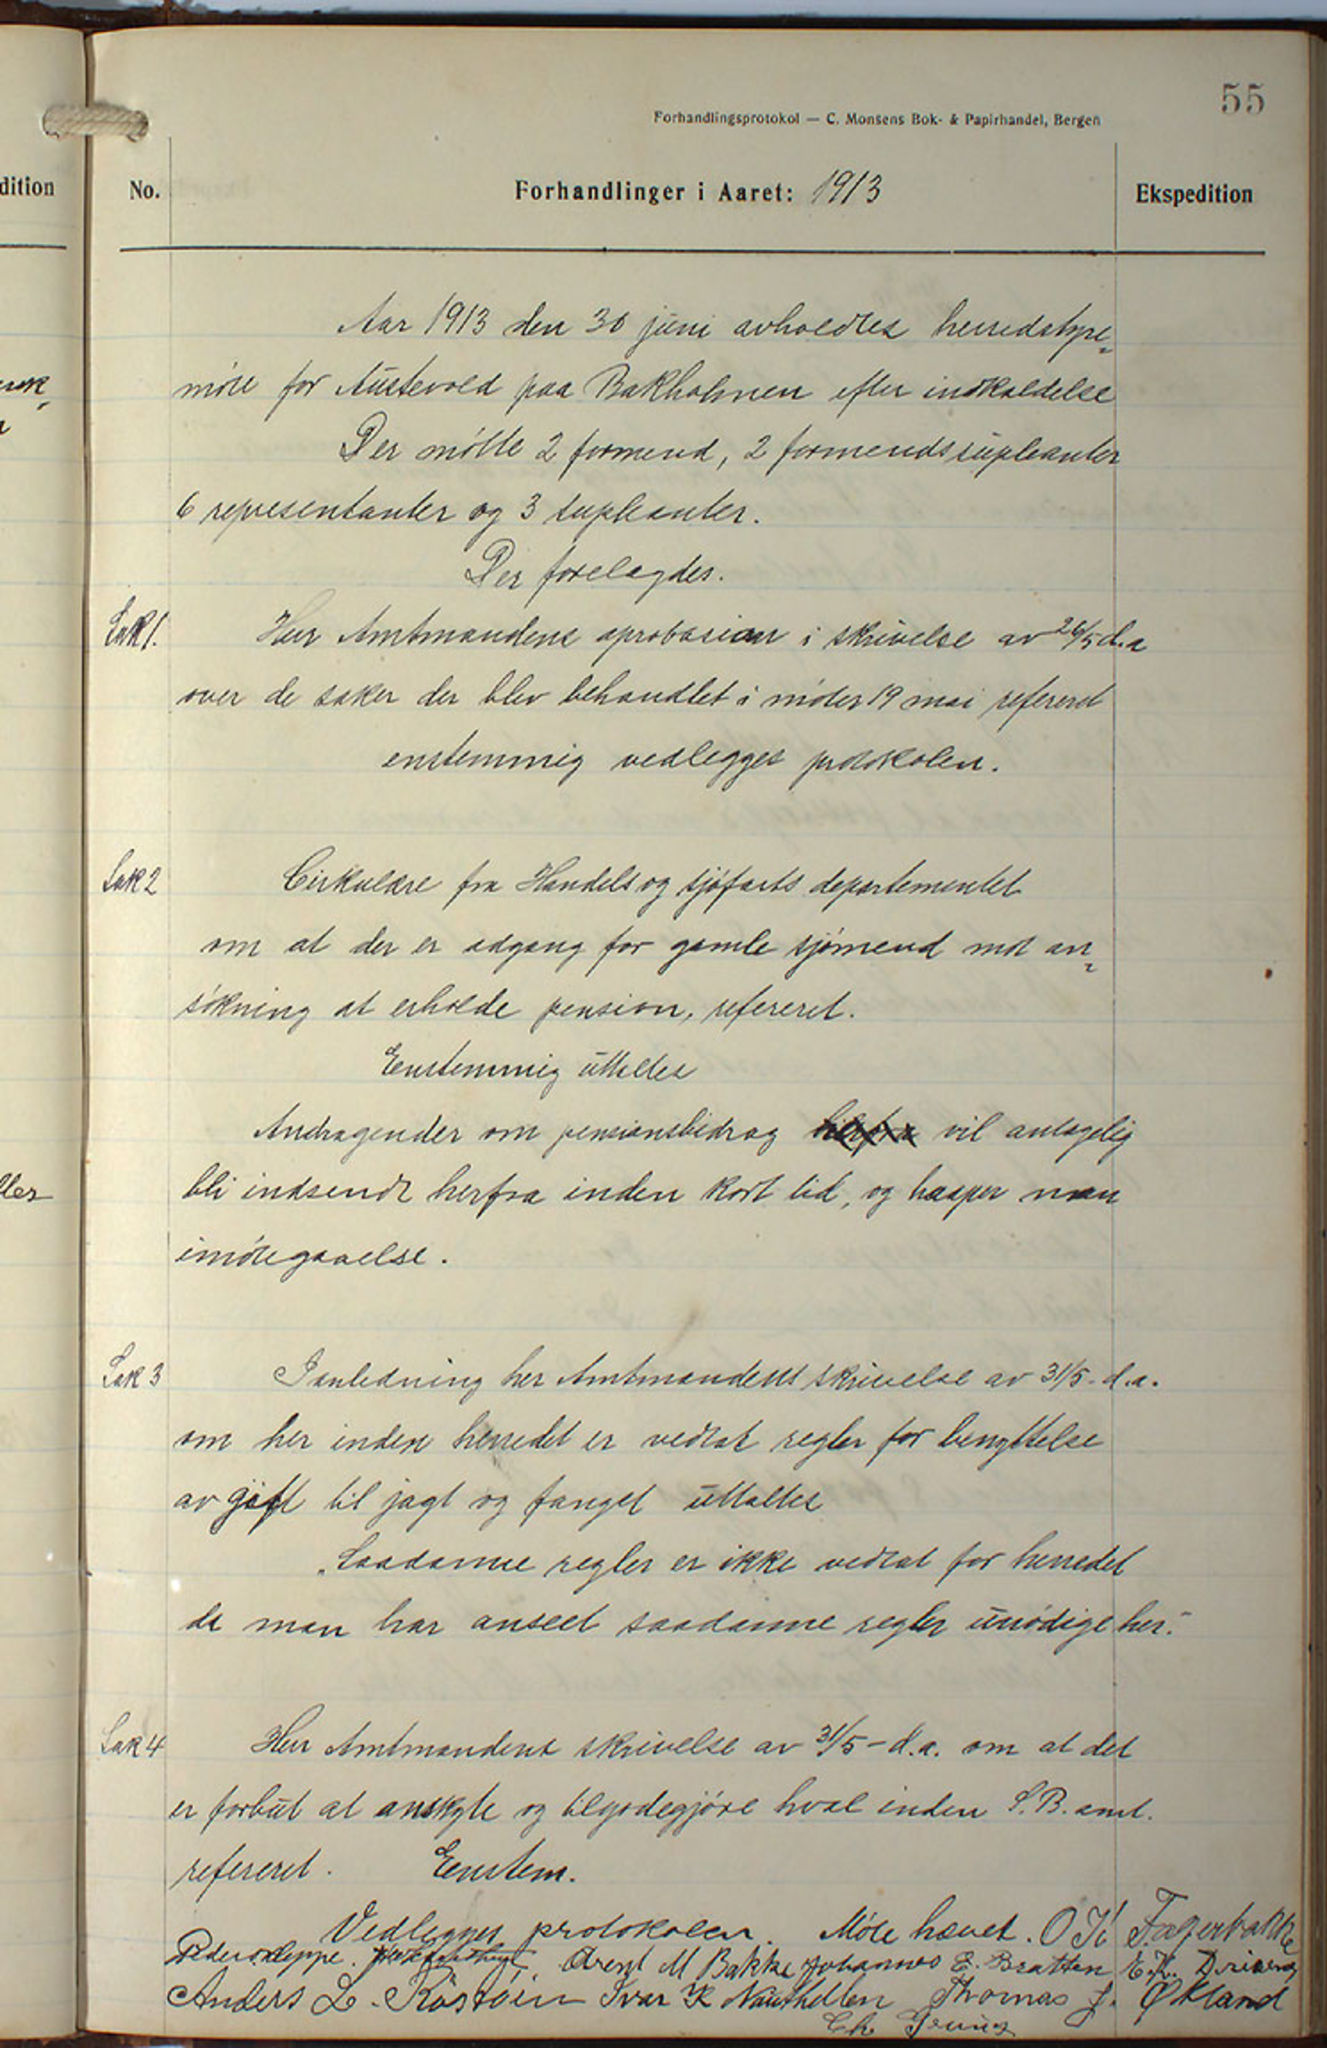 55
Forhandlingsprotokol — C. Monsens Bok- & Papirhandel, Bergen
dition
No.
Forhandlinger i Aaret: 1913
Ekspedition
Aar 1913 den 30 juni avholdtes herredstyre=
møte for Austevold paa Bakholmen efter indkaldelse
Der møtte 2 formend, 2 formendssupleanter
6 representanter og 3 supleanter.
Der forelagdes.
Sak 1.
Herr Amtmandens aprobasion i skrivelse av 26/5 d.a
over de saker der blev behandlet i møtet 19 mai refereret
enstemmig vedlegges protokolen.
Sak 2
Cirkulære fra Handels og sjøfarts departementet
om at der er adgang for gamle sjømend mot an=
søkning at erholde pension, refereret.
Enstemmig uttaltes
Andragender om pensionsbidrag herfra vil antagelig
bli indsendt herfra inden kort tid, og haaper man
imøtegaaelse.
Sak 3
I anledning her Amtmandens skrivelse av 31/5 - d.a.
om her inden herredet er vedtat regler for benyttelse
av gift til jagt og fangst uttaltes
"Saadanne regler er ikke vedtat for herredet
da man har anseet saadanne regler unødige her."
Sak 4
Herr Amtmandens skrivelse av 31/5 - d.a. om at det
er forbut at anskyte og tilgodegjøre hval inden S.B. amt.
refereret. Eenstem.
Vedlegges protokolen. Møte hævet. O K Fagerbakke
Arent M Bakke Johannes E. Bratten
Anders L. Rostøin Ivar K Nauthellen Thomas J. Økland